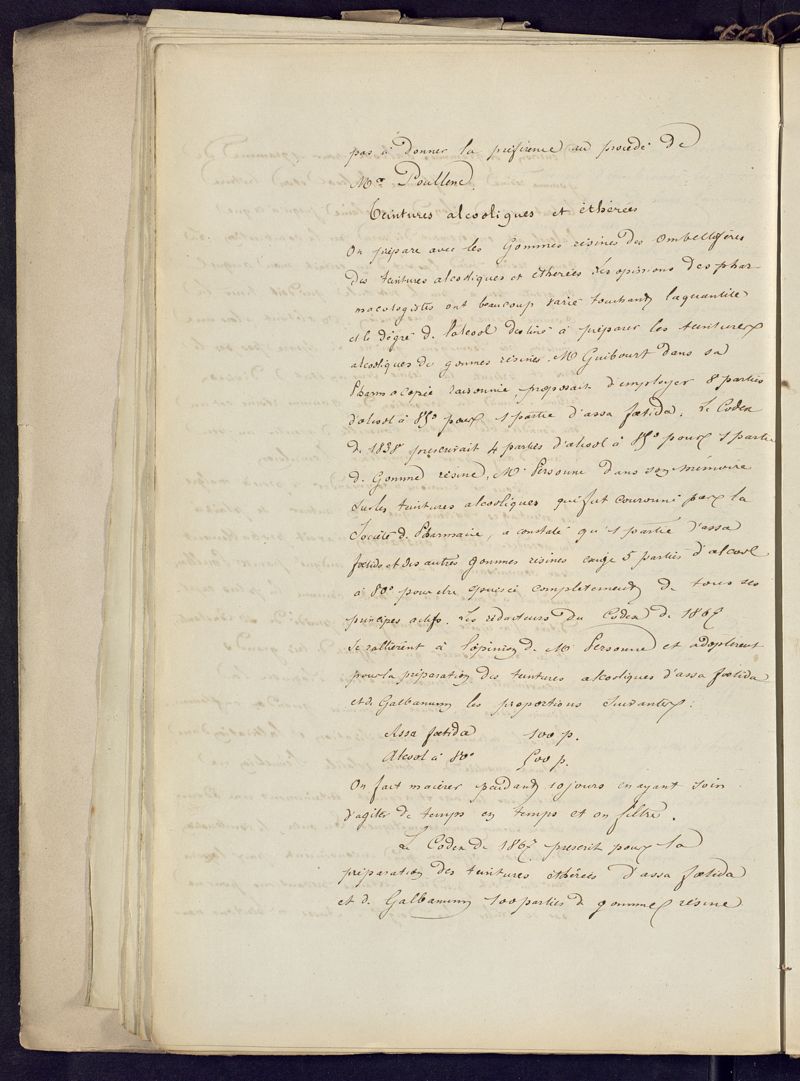 pas à donner la préférence au procédé de
Mr. Poullenc.
Teintures alcooliques et éthérées
On prépare avec les Gommes résines des Ombellifères
des teintures alcooliques et éthérées. Les opinions des phar-
macologistes ont beaucoup varié touchant la quantité
et le dégré de l'alcool destiné à préparer les teintures
alcooliques de gommes résines. Mr Guibourt dans sa
Pharmacopée raisonnée proposait d'employer 8 parties
d'alcool à 85° pour 1 partie d'assa fœtida. Le Codex
de 1838 prescrivait 4 parties d'alcool à 85° pour 1 partie
de Gomme résine. Mr. Personne dans son mémoire
sur les teintures alcooliques qui fut couronné par la
Société de Pharmacie, a constaté qu'1 partie d'assa
fœtida et des autres gommes résines exige 5 parties d'alcool
à 80° pour être épuisée complètement de tous ses
principes actifs. Les rédacteurs du Codex de 1867
se rallièrent à l'opinion de Mr Personne et adoptèrent
pour la préparation des teintures alcooliques d'assa fœtida
et de Galbanum les proportions suivantes :
Assa fœtida 100 p.
Alcool à 80° 500 p.
On fait macérer pendant 10 jours en ayant soin
d'agiter de temps en temps et on filtre.
Le Codex de 1867 prescrit pour la
préparation des teintures éthérées d'assa fœtida
et de Galbanum 100 parties de gomme résine